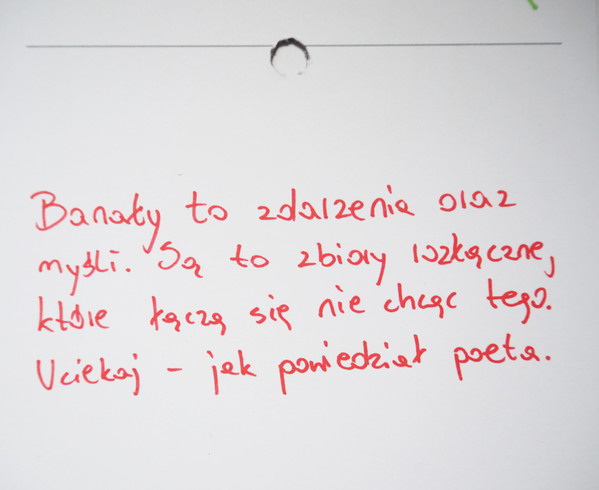 Banały to zdarzenia oraz
myśli. Są to zbiory rozłączne,
które łączą się nie chcąc tego.
Uciekaj – jak powiedział poeta.